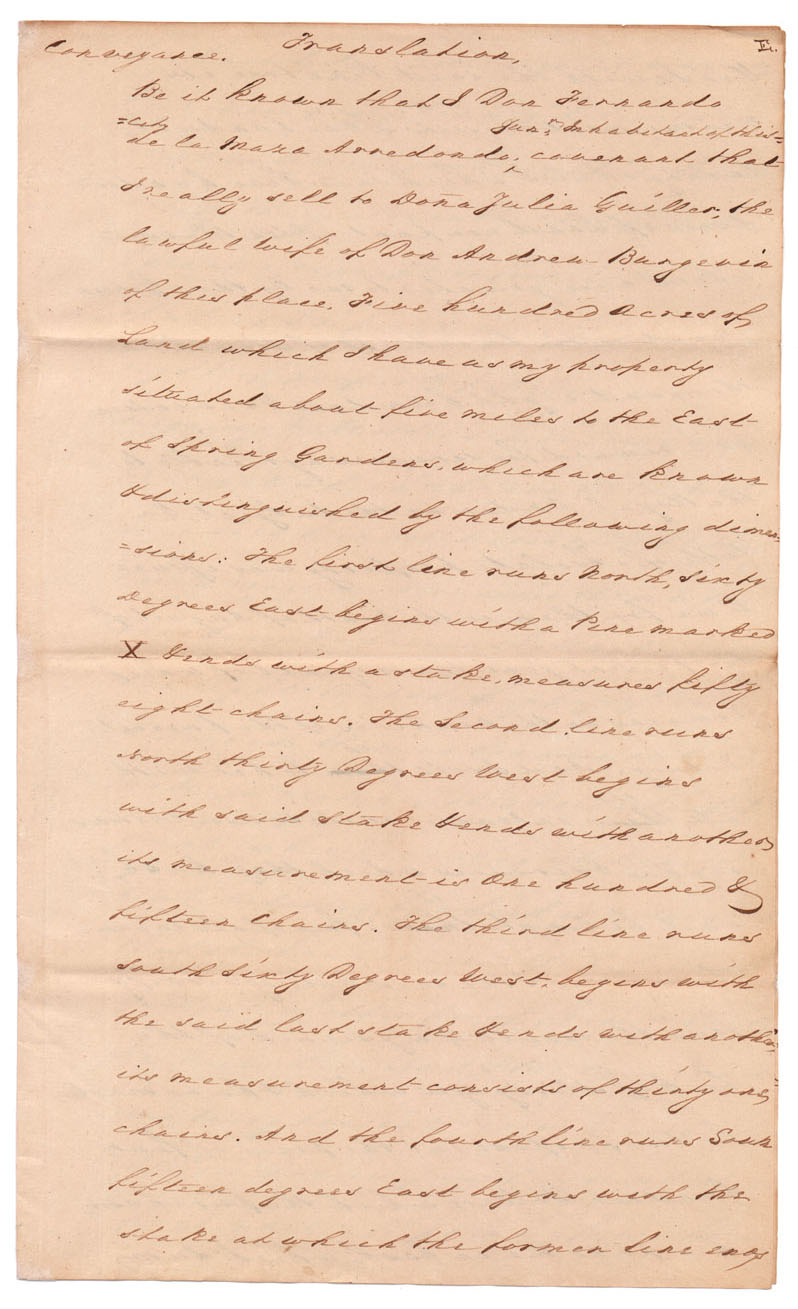 Conveyance. Translation, E.
Be it known that I Don Fernando
=city Junr. Inhabitant of this=
de la Maza Arredondo, covenant that
I really sell to Doña Julia Guiller, the
lawful wife of Don Andrew Burgevin
of this place, Five hundred Acres of
Land which I have as my property
situated about five miles to the East
of Spring Gardens, which are known
& distinguished by the following dimen=
=sions: The first line runs North, Sixty
Degrees East begins with a Pine marked
X & ends with a stake, measures fifty
eight chains. The Second line runs
North thirty Degrees West begins
with said stake & ends with another,
its measurement is One hundred &
fifteen Chains. The third line runs
South Sixty Degrees West, begins with
the said last stake & ends with another,
its measurement consists of thirty one
chains. And the fourth line runs South
fifteen degrees East begins with the
stake at which the former line ends